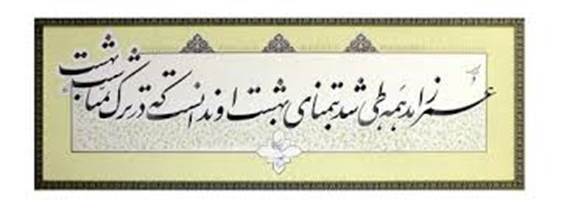 عمر زاهد همه طی شد بتمنای بهشت او ندانست که در ترک تمناست بهشت